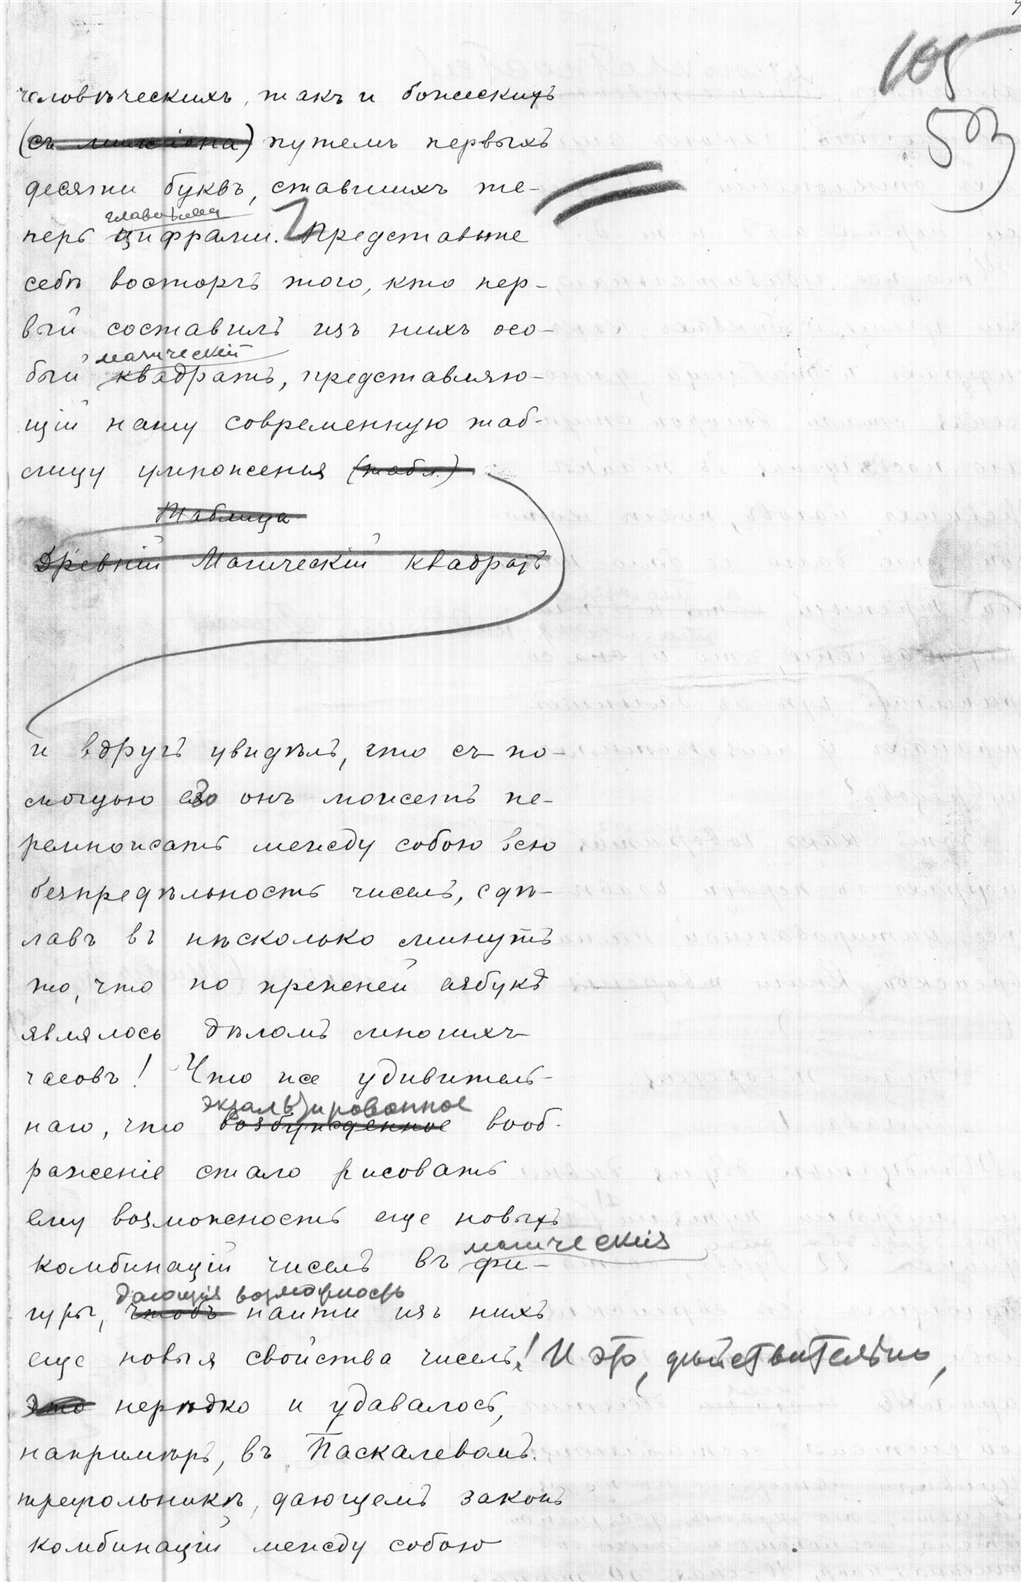 105
503
человѣческихъ, такъ и божескихъ
(съ милліона) путемъ первыхъ
десяти буквъ, ставшихъ те-
главными
перь цифрами. Представьте
себѣ восторгъ того, кто пер-
вый составилъ изъ нихъ осо-
магическій
бый квадратъ, представляю-
щій нашу современную таб-
лицу умноженія (табл.)
Таблица
Древній Магическій квадратъ
и вдругъ увидѣлъ, что съ по-
мощью его онъ можетъ пе-
ремножать между собою всю
безпредѣльность чиселъ, сдѣ-
лавъ въ нѣсколько минутъ
то, что по прежней азбукѣ
являлось дѣломъ многихъ
часовъ! Что же удивитель-
экзальтированное
наго, что возбужденное вооб-
раженіе стало рисовать
ему возможность еще новыхъ
магическія
комбинацій чиселъ въ фи-
дающія возможность
гуры, чтобъ найти изъ нихъ
еще новыя свойства чиселъ! И это, дѣйствительно,
это нерѣдко и удавалось,
напримѣръ, въ Паскалевомъ
треугольникѣ, дающемъ законъ
комбинацій между собою